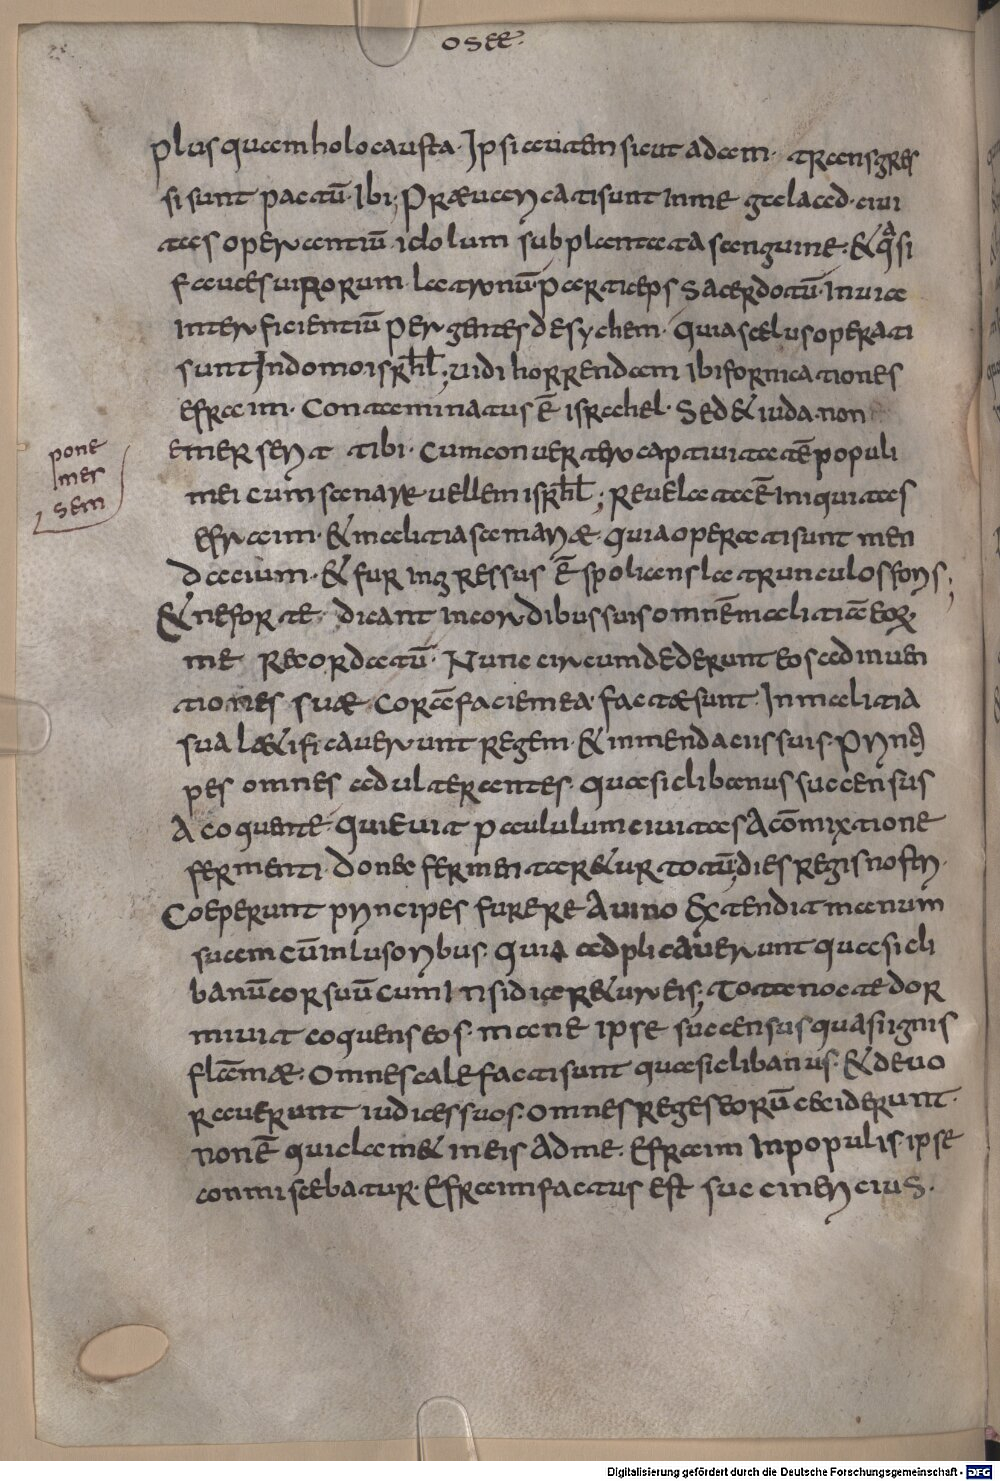 OSEE·
plus quam holocausta· Ipsi autem sicut adam· transgres
si sunt pactū· Ibi; Prævaricati sunt in me galaad· civi
tas operantiū idolum subplantata sanguine· & q̄si
fauces virorum latronū· particeps sacerdotū· In via
interficientiū pergentes de sychem· quia scelus operati
sunt In domo isrl; vidi horrendam Ibi fornicationes
efraim· Contaminatus ē israhel· Sed & iuda· non
messem tibi· Cum converter captivitatē populi
mei cum sanare vellem isrl; Revelata ē iniquitas
efraim· & malitia samariæ· quia operati sunt men
dacium· & fur ingressus ē spolians latrunculos foris;
& ne forte dicant in cordibus suis omnē malitiā eor
me Recordatū· Nunc circumdederunt eos adinven
tiones suæ Corā facie mea· factæ sunt· In malitia
sua lætificaverunt regem· & in mendaciis suis prin
pes omnes adulterantes· quasi clibanus succensus
A coquente· Quievit paululum civitas A cōmixtione
fermenti· Donec fermentaretur totū; dies regis nostri·
Coeperunt principes furere A vino Extendit manum
suam cū inlusoribus· Quia adplicaverunt quasi cli
banū cor suū Cum Insidiaretur eis; Tota nocte dor
mivit coquens eos· mane ipse succensus quasi ignis
flāmæ· Omnes calefacti sunt quasi clibanus· & devo
raverunt iudices suos· omnes reges eorū ceciderunt·
non ē qui clamet in eis Ad me· Efraim In populis ipse
conmiscebatur· Efraim factus est subcineri cius·
pone
mes
sem
Digitalisierung gefördert durch die Deutsche Forschungsgemeinschaft - DFG